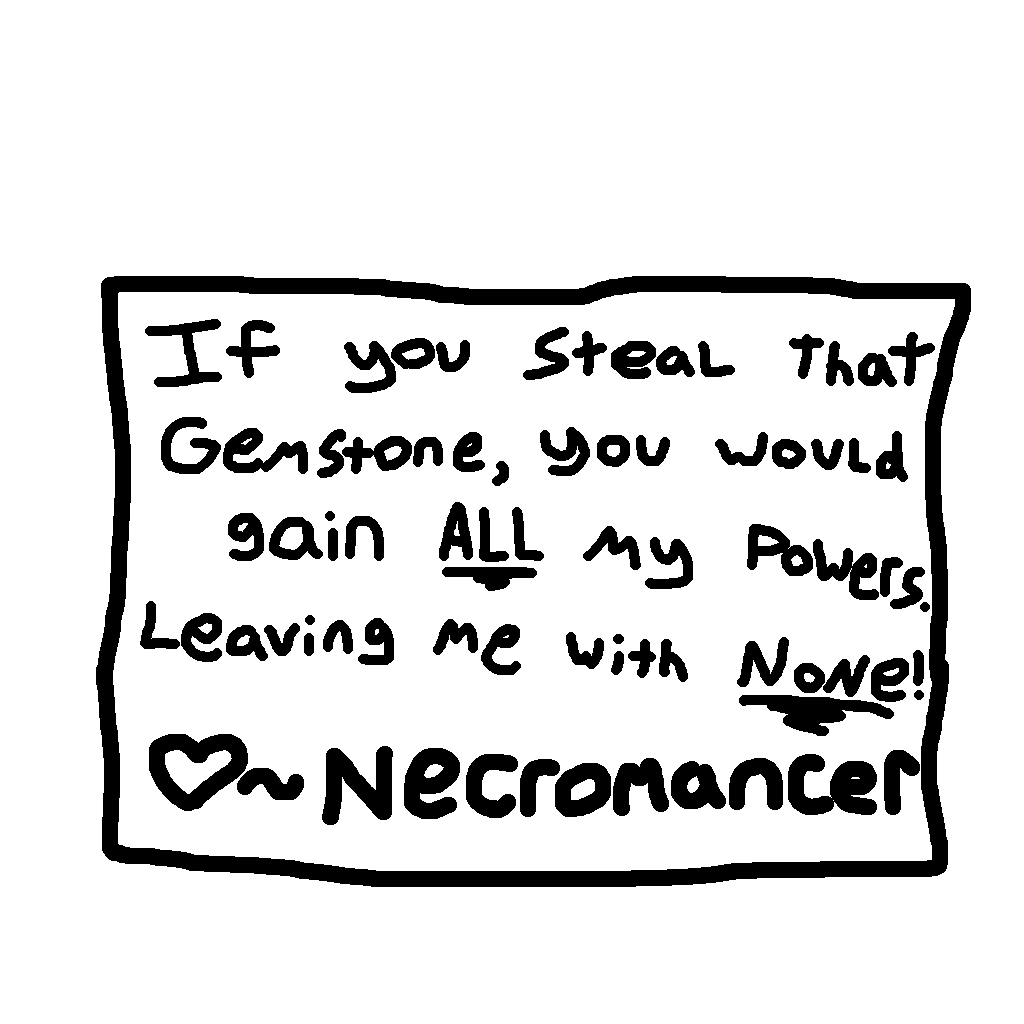 If you steal that
Gemstone, you would
gain ALL my Powers.
Leaving me with NONe!
♡~ Necromancer